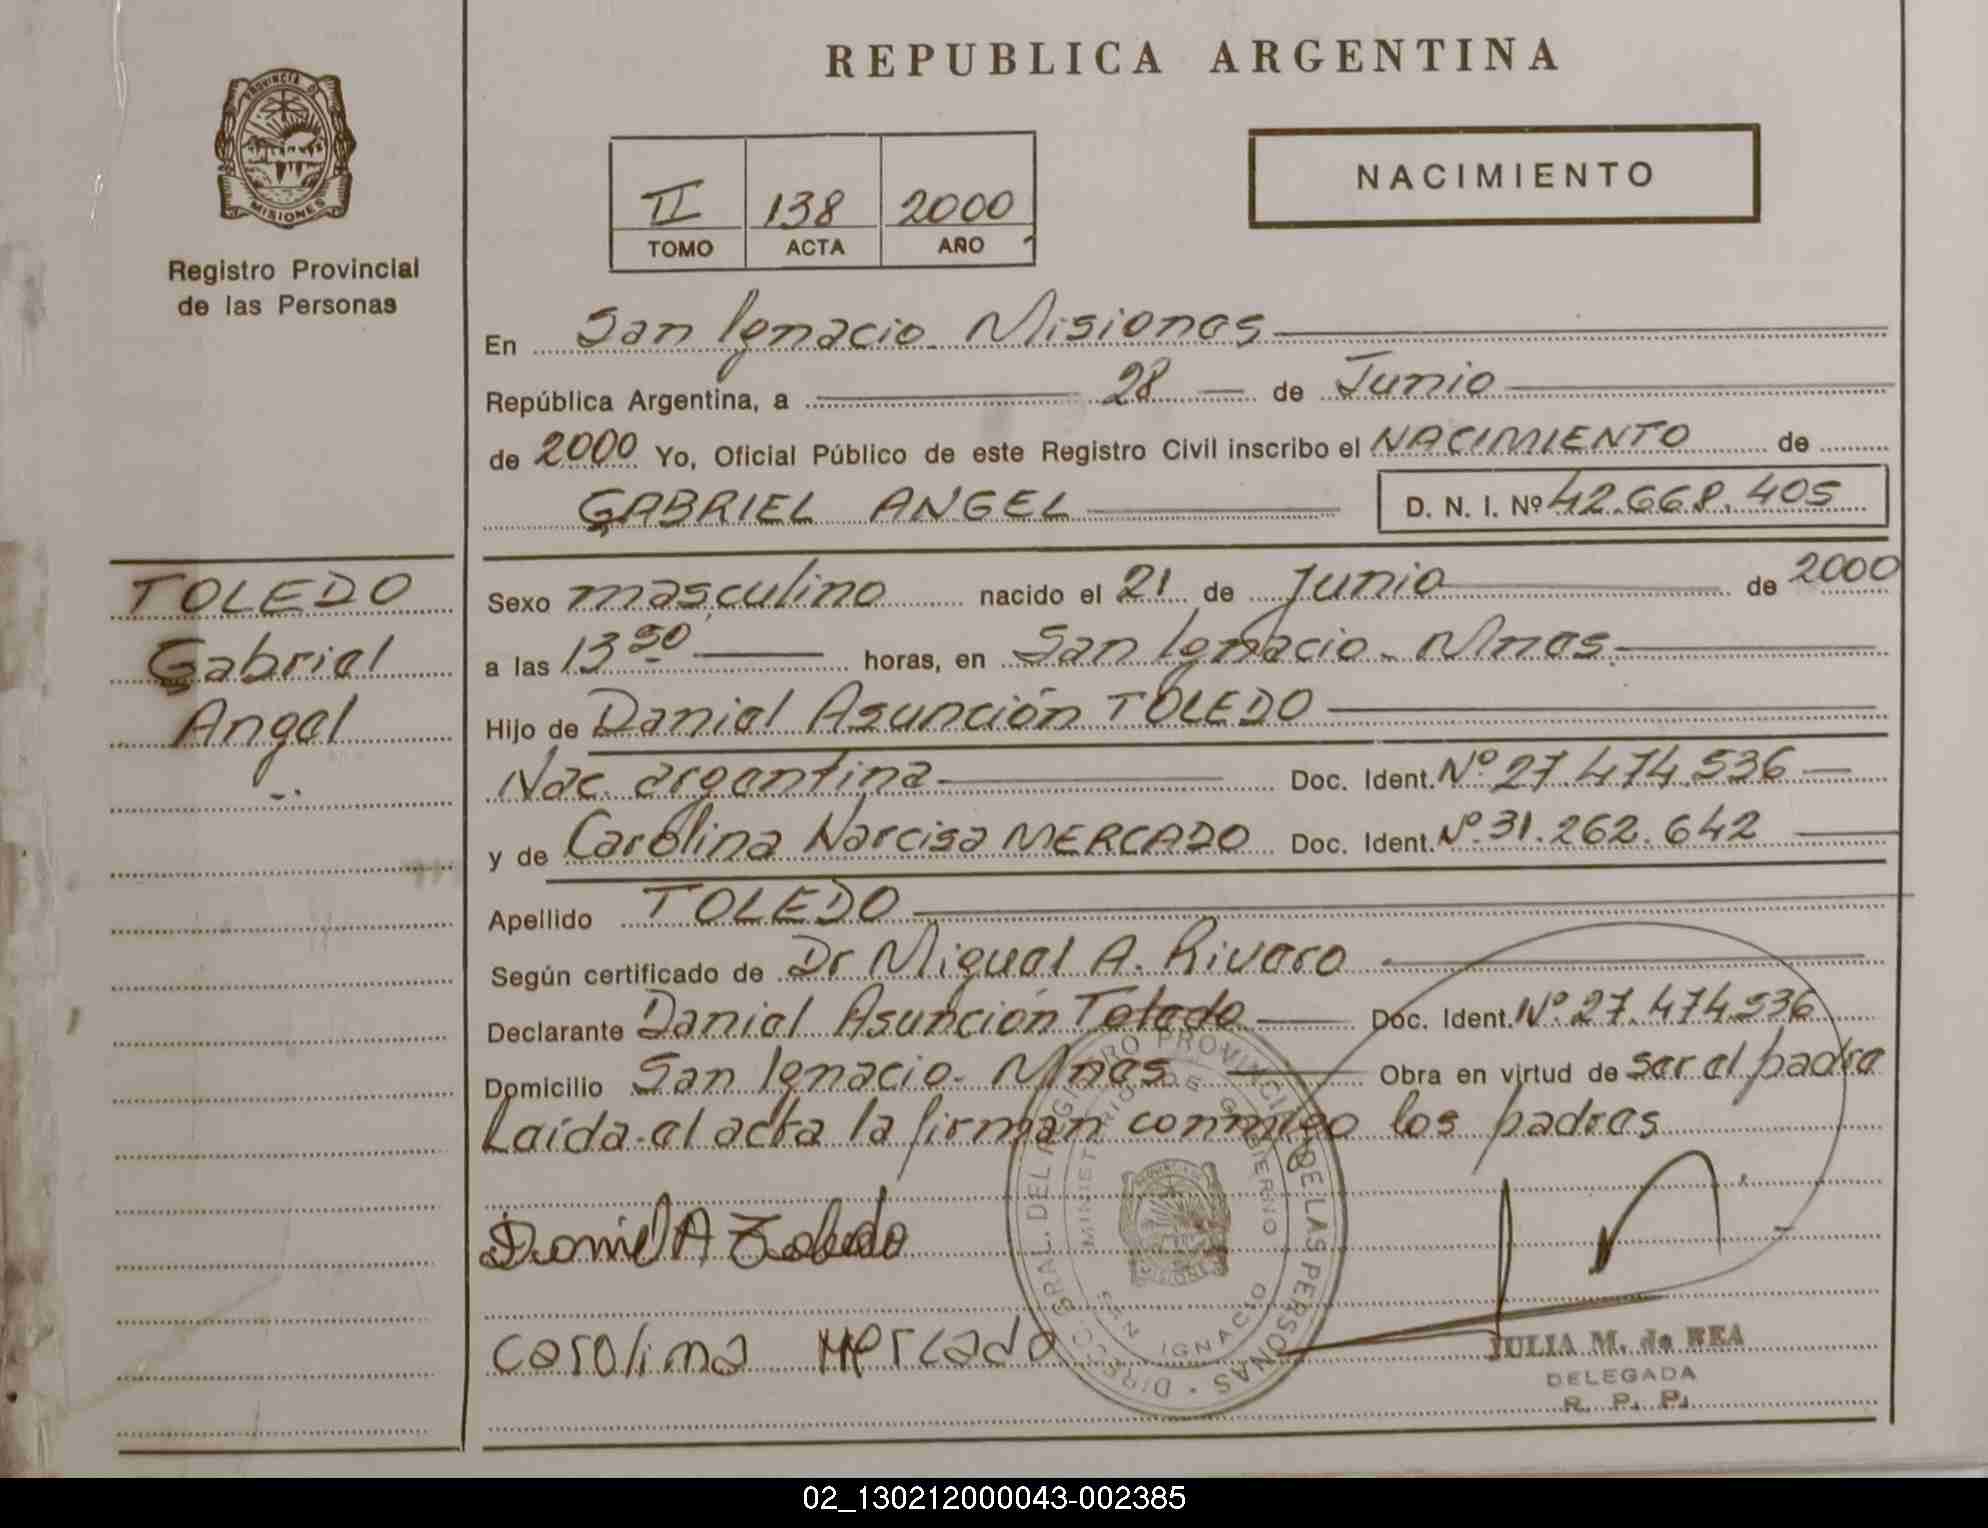 REPUBLICA ARGENTINA
PROVINCIA DE
MISIONES
Registro Provincial
de las Personas
II 138 2000
TOMO ACTA AÑO
NACIMIENTO
En San Ignacio Misiones
República Argentina, a 28 de Junio
de 2000 Yo, Oficial Público de este Registro Civil inscribo el NACIMIENTO de
GABRIEL ANGEL D. N. I. Nº 42.668.405
TOLEDO
Gabriel
Angel
Sexo masculino nacido el 21 de Junio de 2000
a las 13 50 horas, en San Ignacio - Mnes.
Hijo de Daniel Asunción TOLEDO
Nac. argentina Doc. Ident. Nº 27.474.536
y de Carolina Narcisa MERCADO Doc. Ident. Nº 31.262.642
Apellido TOLEDO
Según certificado de Dr Miguel A. Rivero
Declarante Daniel Asunción Toledo Doc. Ident. Nº 27.474.536
Domicilio San Ignacio - Mnes Obra en virtud de ser el padre
Leída el acta la firman conmigo los padres
Daniel A Toledo
Carolina Mercado
DIRECC. GRAL. DEL REGISTRO PROVINCIAL DE LAS PERSONAS
MINISTERIO DE GOBIERNO
SAN IGNACIO
JULIA M. de REA
DELEGADA
R. P. P.
02_130212000043-002385